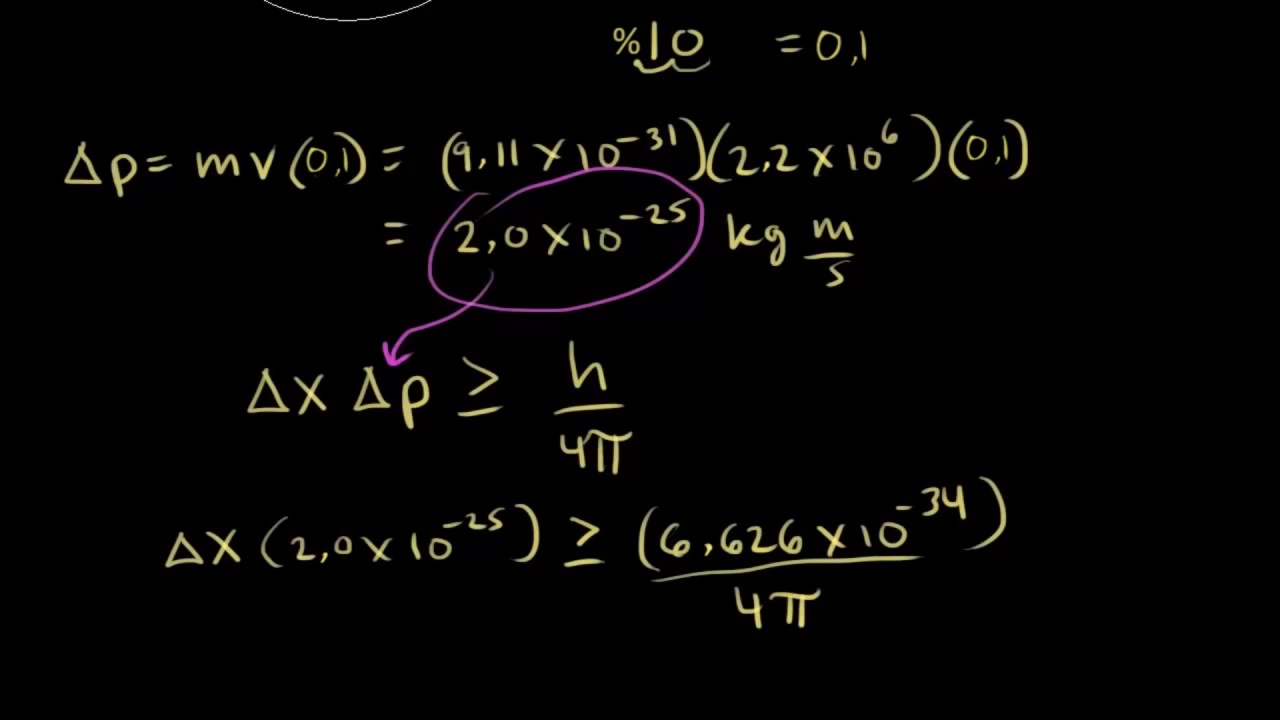 %10 = 0,1
Δp = mv(0,1) = (9,11 x 10⁻³¹)(2,2 x 10⁶)(0,1)
= 2,0 x 10⁻²⁵ kg m/s
Δx Δp ≥ h/4π
Δx (2,0 x 10⁻²⁵) ≥ (6,626 x 10⁻³⁴)/4π